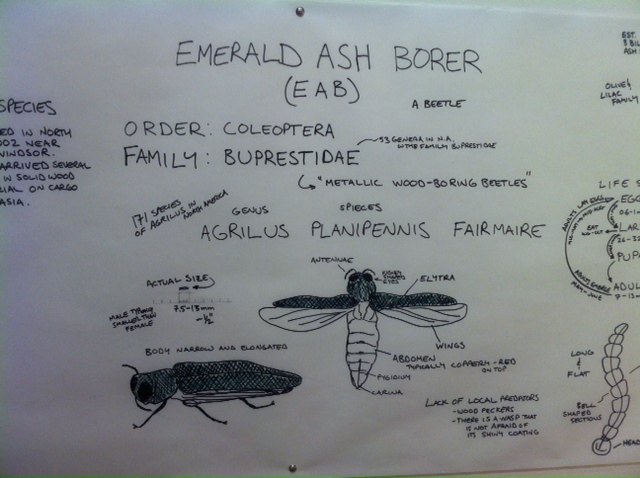 EMERALD ASH BORER
(EAB)
A BEETLE
SPECIES
ED IN NORTH
002 NEAR
WINDSOR.
ARRIVED SEVERAL
IN SOLID WOOD
IAL ON CARGO
ASIA.
ORDER: COLEOPTERA
FAMILY: BUPRESTIDAE
53 GENERA IN N.A.
IN THE FAMILY BUPRESTIDAE
"METALLIC WOOD-BORING BEETLES"
171 SPECIES
OF AGRILUS IN NORTH AMERICA
GENUS
SPIECES
AGRILUS PLANIPENNIS FAIRMAIRE
ANTENNAE
KIDNEY
SHAPED
EYES
ELYTRA
ACTUAL SIZE
7.5-13mm
~1/2"
MALE TYPICALLY
SMALLER THAN
FEMALE
BODY NARROW AND ELONGATED
WINGS
ABDOMEN
TYPICALLY COPPERY-RED
ON TOP
PYGIDIUM
CARINA
LACK OF LOCAL PREDATORS
- WOOD PECKERS
- THERE IS A WASP THAT
IS NOT AFRAID OF
ITS SHINY COATING
EST.
8 BIL
ASH
OLIVE &
LILAC
FAMILY
LIFE S
EGG
LAR
PUPA
ADUL
7-13
MAY-JUNE
LONG
&
FLAT
BELL
SHAPED
SECTIONS
HEAD